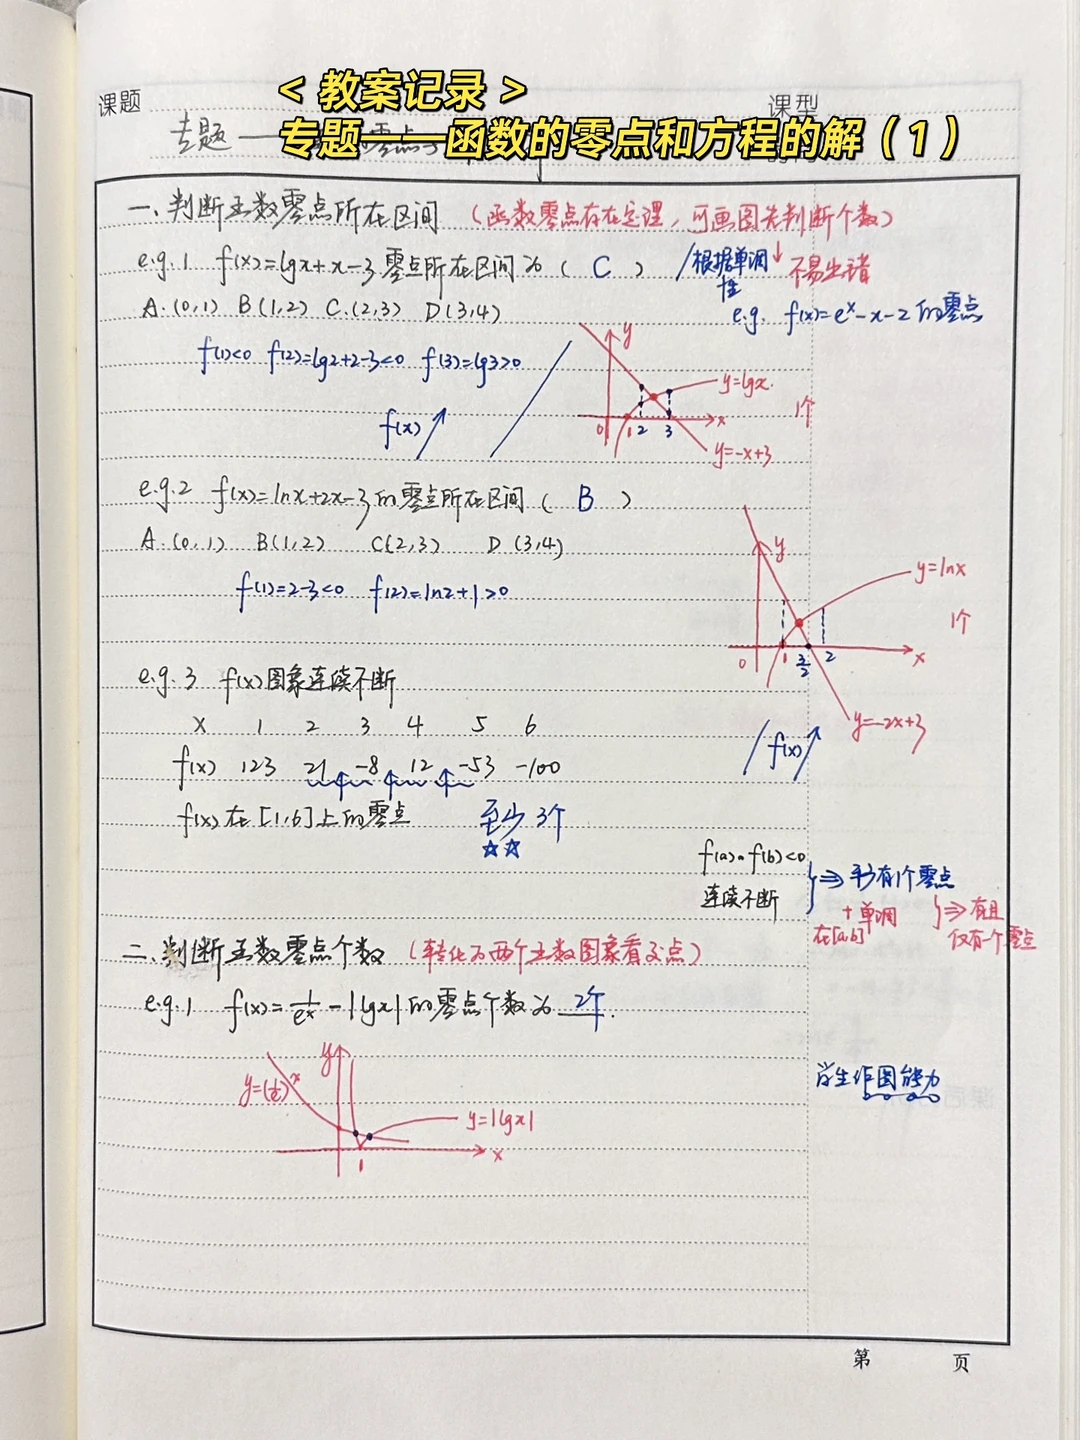 <教案记录>
课题
课型
专题——函数的零点和方程的解（1）
专题
一、判断函数零点所在区间 (函数零点存在定理，可画图先判断个数)
e.g.1 f(x)=lgx+x-3 零点所在区间为 ( C )
根据单调性
不易出错
A.(0,1) B(1,2) C.(2,3) D(3,4)
e.g. f(x)=eˣ-x-2 的零点
f(1)<0 f(2)=lg2+2-3<0 f(3)=lg3>0
f(x)↗
y
y=lgx.
0 1 2 3 x
y=-x+3
1个
e.g.2 f(x)=lnx+2x-3 的零点所在区间 ( B )
A.(0,1) B(1,2) C(2,3) D (3,4)
f(1)=2-3<0 f(2)=ln2+1>0
y
y=lnx
1个
0 1 3/2 2 x
y=-2x+3
f(x)↗
e.g.3 f(x)图象连续不断
x 1 2 3 4 5 6
f(x) 123 21 -8 12 -53 -100
f(x)在[1,6]上的零点 至少3个
☆☆
f(a)·f(b)<0
连续不断
⇒ 有1个零点
+单调
在[a,b]
⇒有且
仅有一个零点
二、判断函数零点个数 (转化为两个函数图象看交点)
e.g.1 f(x)=1/eˣ-|lgx| 的零点个数为 2个.
学生作图能力
y
y=(1/e)ˣ
y=|lgx|
1 x
第 页